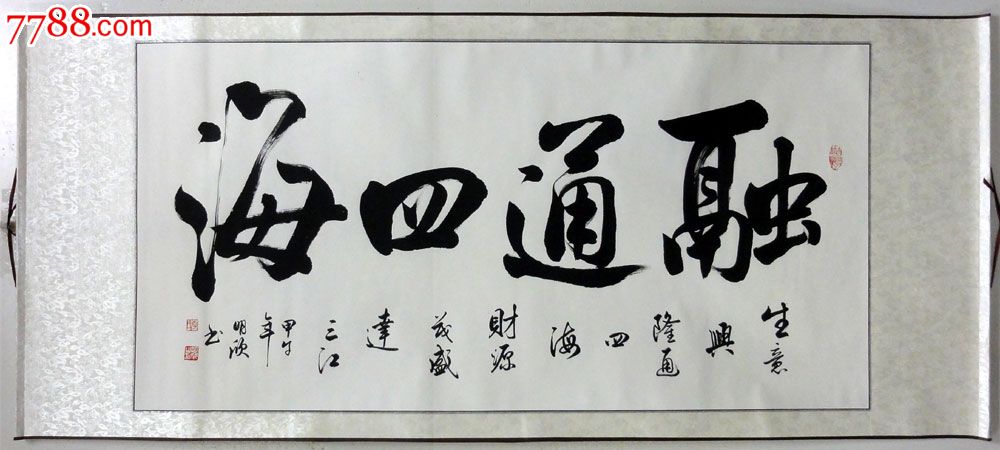 7788.com
融通四海
生意
興
隆通
四
海
財源
茂盛
達
三江
甲午
年
明欣
书